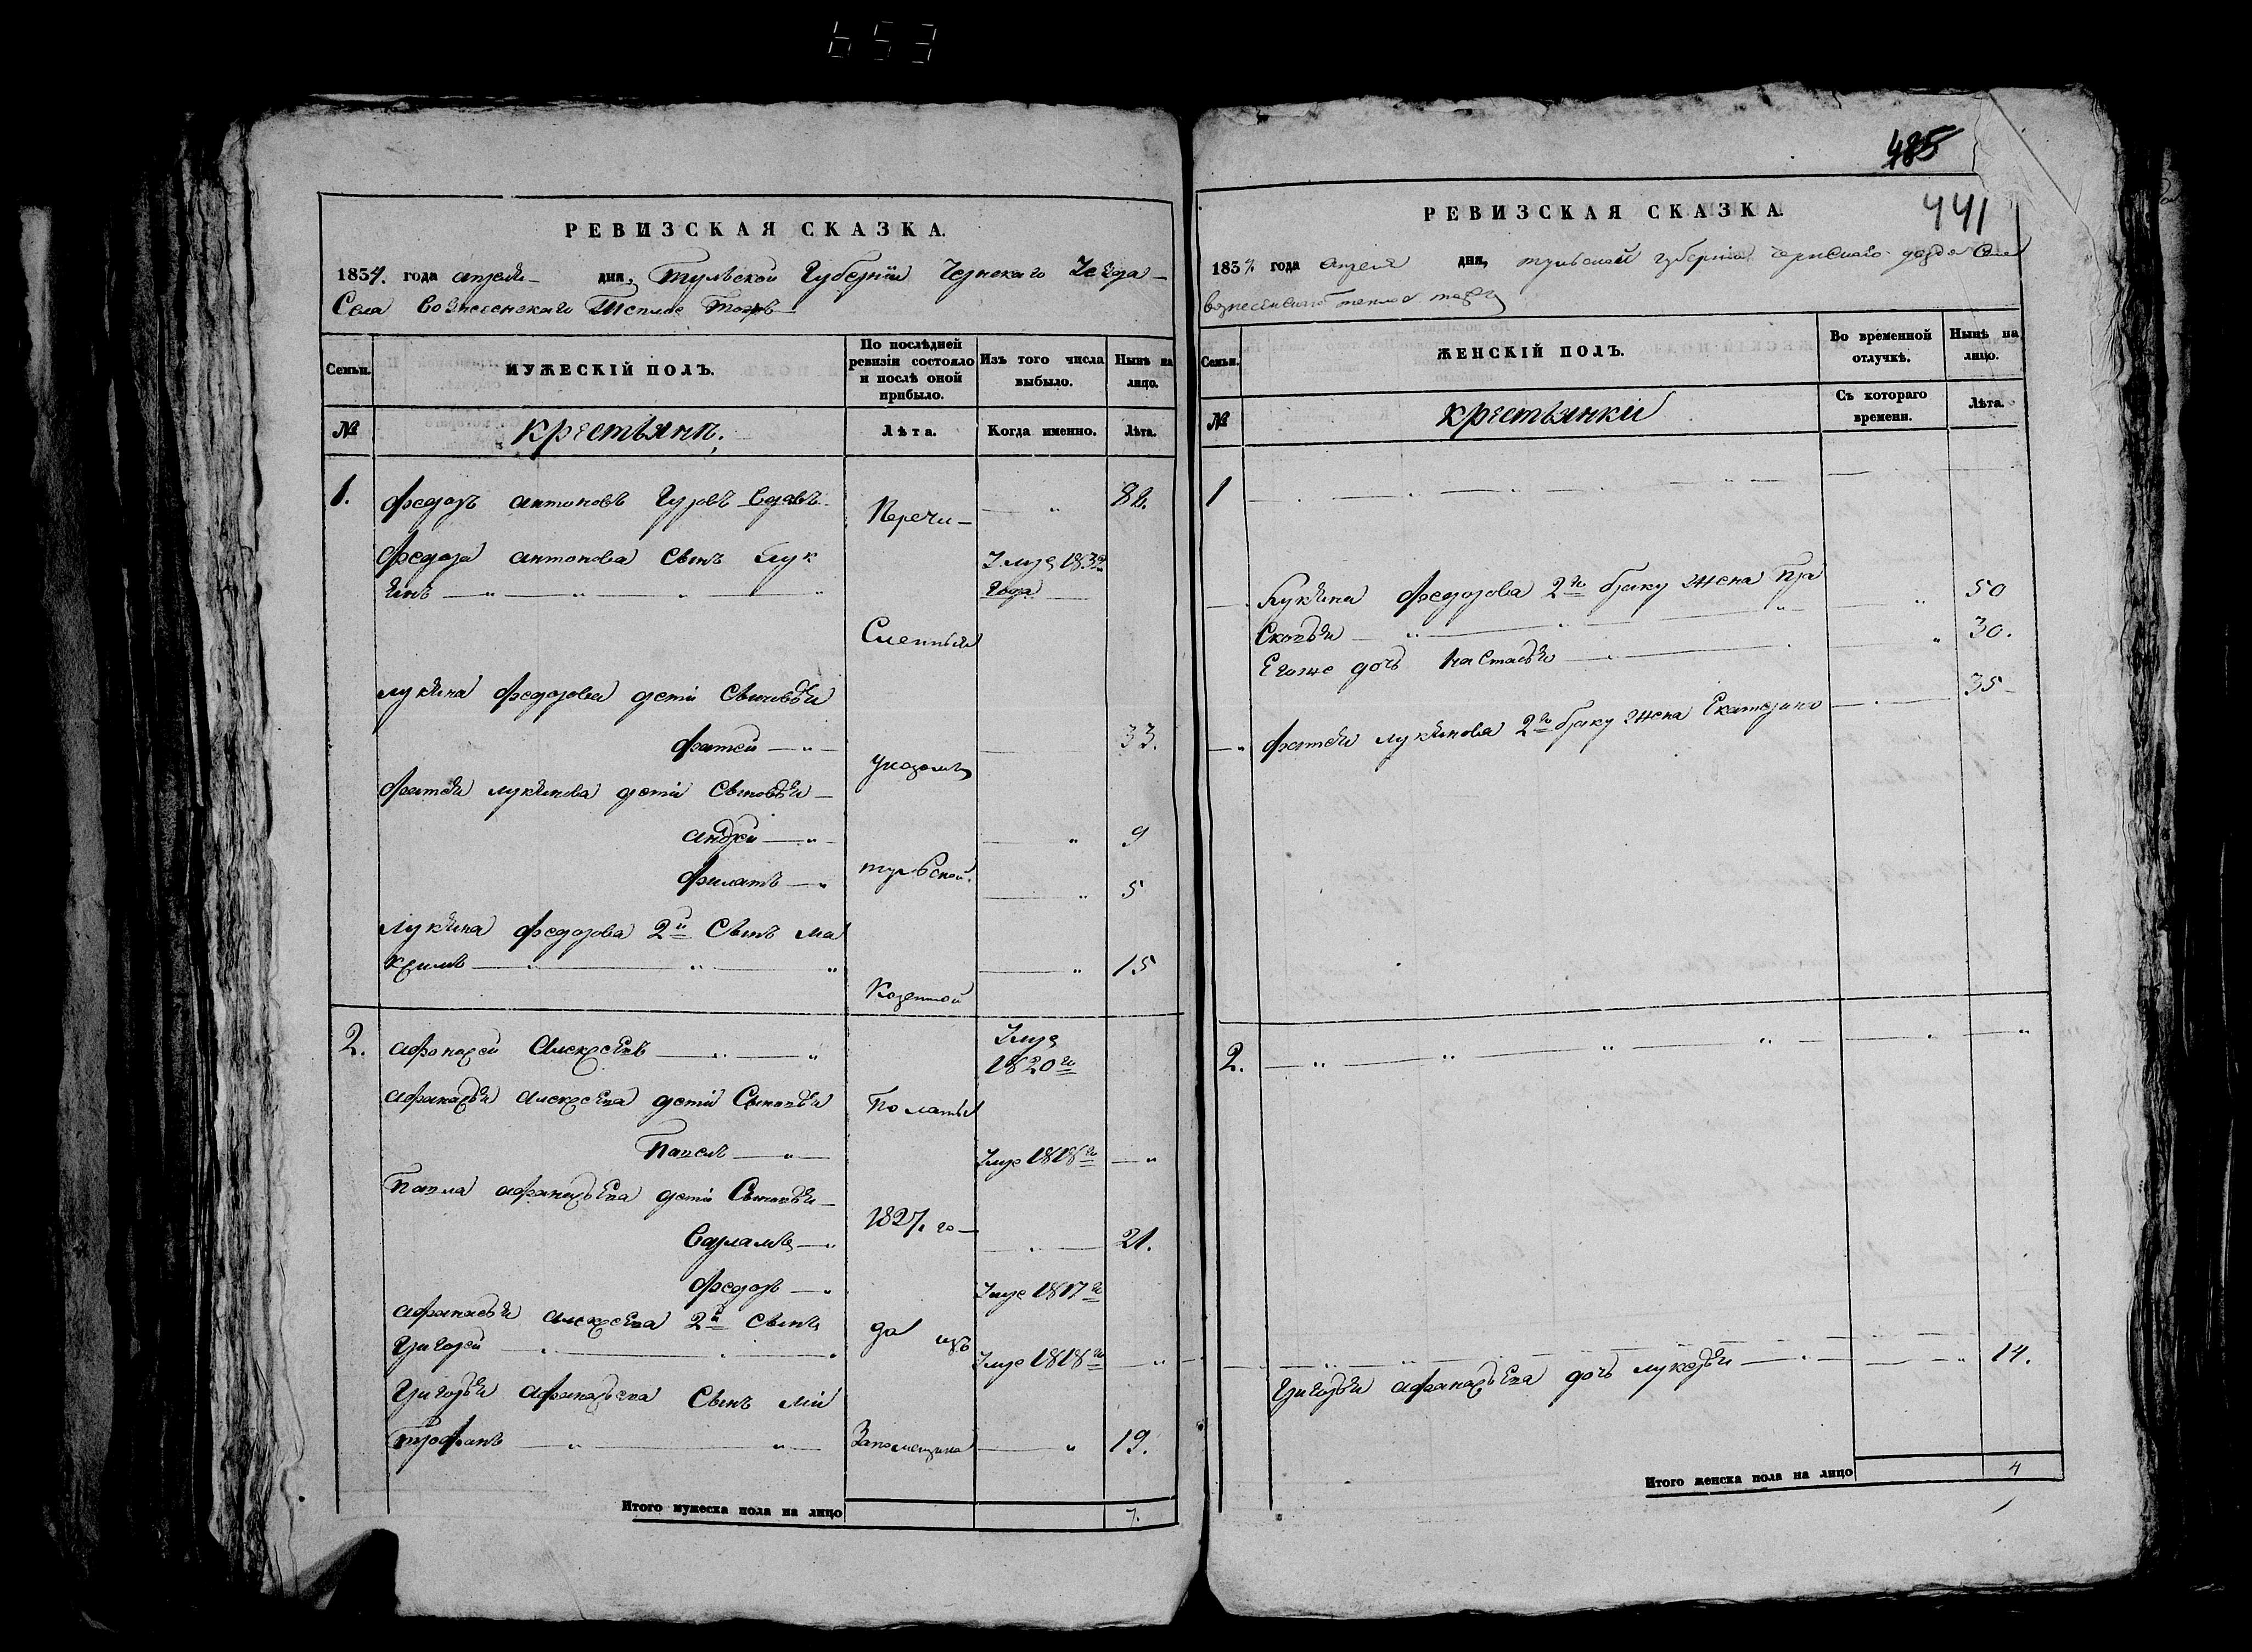 653
РЕВИЗСКАЯ СКАЗКА.
1834. года апреля дня, Тульской Губернии Чернскаго Уезда
Села Вознесенскаго Теплое тожъ
Семьи.
МУЖЕСКІЙ ПОЛЪ.
По послѣдней ревизіи состояло и послѣ оной прибыло.
Изъ того числа выбыло.
Нынѣ на лицо.
№
крестьяня,
Лѣта.
Когда именно.
Лѣта.
1. Федоръ антоновъ Гуровъ 82.
Перечи-
Федора антонова Сынъ Лук
Умре 183
ѣянъ года
Сленныя
лукѣяна Федорова дети Сыновьи
Фатей 33.
указомъ
Фатея лукянова дети Сыновьи
андрей 9
тульской
Филатъ 5
лукяна Федорова 2й Сынъ ма
ксимъ 15
Казенной
2. афонасей Алексеевъ Умре 1820го
афанасьи алексеева дети Сыновьи
Полаты
Павелъ Умре 1818го
Павла афанасьева дети Сыновьи
1827. го
Варламъ 21.
Федоръ Умре 1817го
афанасьи алексеева 2й сынъ
да изъ
Григорей Умре 1818го
Григорьи афанасьева Сынъ ми
трофанъ 19.
Запомещика
Итого мужеска пола на лицо 7.
485
441
РЕВИЗСКАЯ СКАЗКА.
1834. года Апреля дня, тульской губернии чернскаго уезда Села
вознесенскаго теплое тожъ
Семьи.
ЖЕНСКІЙ ПОЛЪ.
Во временной отлучкѣ.
Нынѣ на лицо.
№
крестьянки
Съ котораго времени.
Лѣта.
1
Лукяна Федорова 2го браку жена Пра 50
Сковьи
Егоже дочь Настасьи 30.
Фатеи лукянова 2го браку жена Екатерина 35
2.
Григорьи афанасьева дочь лукерьи 14.
Итого женска пола на лицо 4